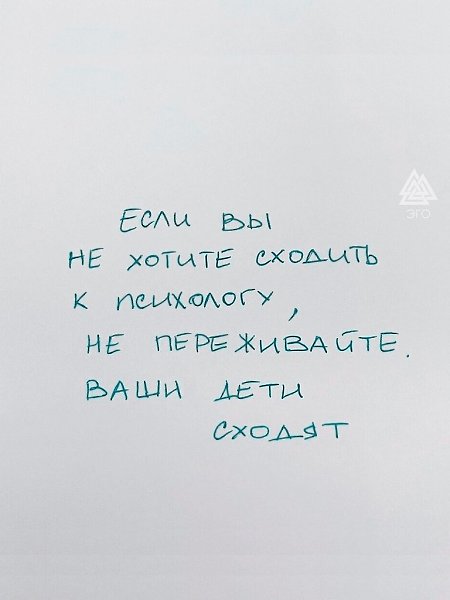 ЭГО
ЕСЛИ ВЫ
НЕ ХОТИТЕ СХОДИТЬ
К ПСИХОЛОГУ,
НЕ ПЕРЕЖИВАЙТЕ.
ВАШИ ДЕТИ
СХОДЯТ